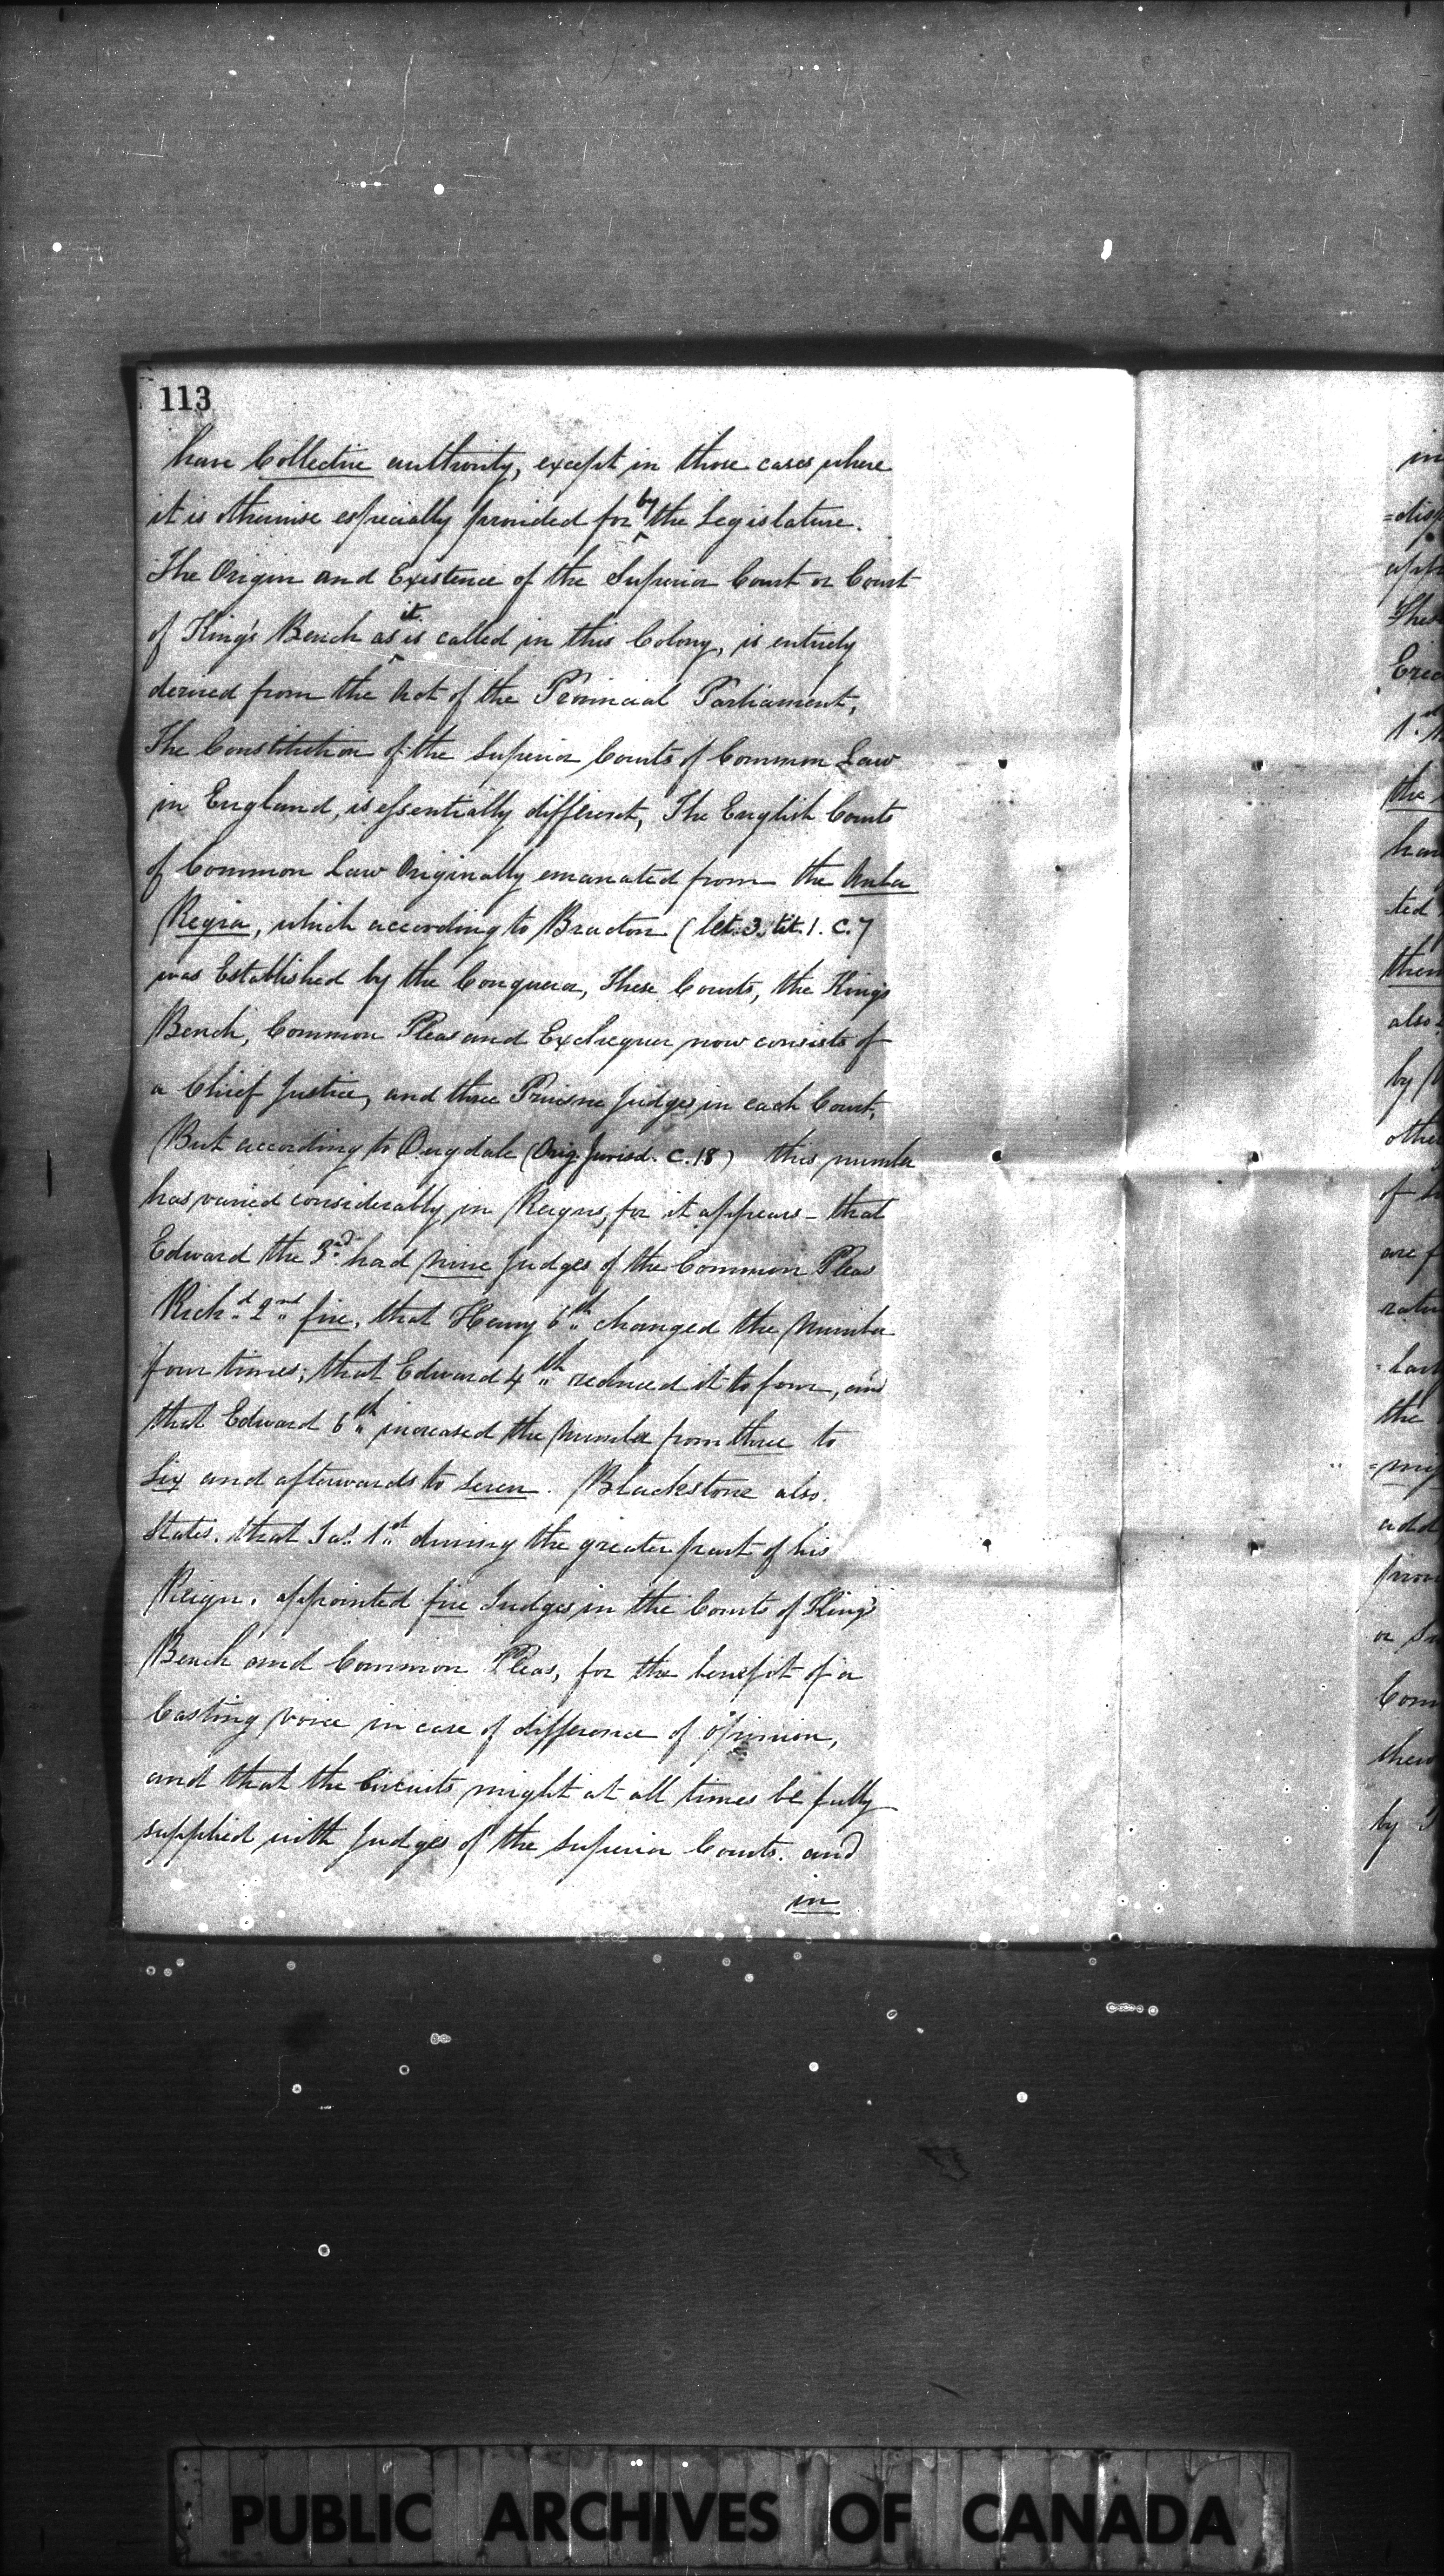 113
have Collective authority, except in those cases where
it is otherwise especially provided for by the Legislature.
The Origin and Existence of the Superior Court or Court
of King's Bench as it is called in this Colony, is entirely
derived from the Act of the Provincial Parliament,
The Constitution of the Superior Courts of Common Law
in England, is essentially different, The English Courts
of Common Law Originally emanated from the Aula
Regia, which according to Bracton ( let. 3. tit. 1. C. 7
was Established by the Conqueror, These Courts, the King's
Bench, Common Pleas and Exchequer now consists of
a Chief Justice, and three Puisne Judges in each Court,
But according to Dugdale (Orig. Jurisd. C. 18) this number
has varied considerably in Reigns, for it appears - that
Edward the 3rd had nine Judges of the Common Pleas
Richd 2nd five, that Henry 6th changed the Number
four times; that Edward 4th reduced it to four, and
that Edward 6th increased the number from three to
Six and afterwards to seven. Blackstone also
States. that Jas. 1st during the greater part of his
Reign. appointed five Judges in the Courts of King's
Bench and Common Pleas, for the benefit of a
Casting voice in case of difference of opinion,
and that the Circuits might at all times be fully
supplied with Judges of the Superior Courts. and
in
in
=disp
The
the
ted
them
also
by
other
of
are f
the
add
or Su
Com
by
PUBLIC ARCHIVES OF CANADA